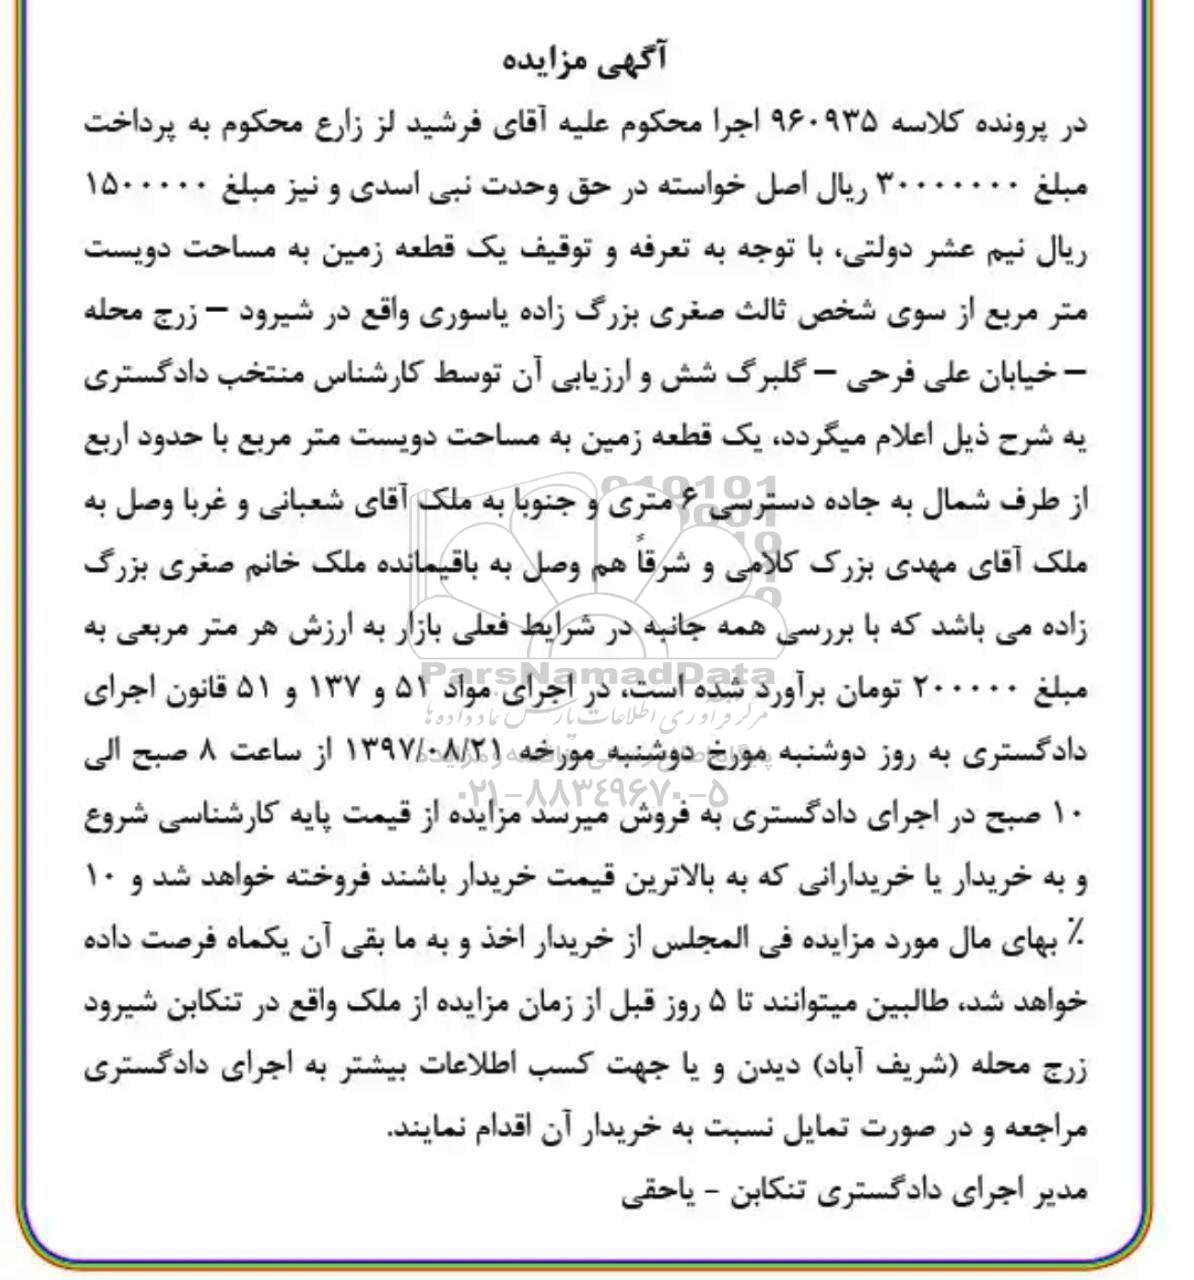 آگهی مزایده
در پرونده کلاسه ۹۶۰۹۳۵ اجرا محکوم علیه آقای فرشید لز زارع محکوم به پرداخت
مبلغ ۳۰۰۰۰۰۰۰ ریال اصل خواسته در حق وحدت نبی اسدی و نیز مبلغ ۱۵۰۰۰۰۰
ریال نیم عشر دولتی، با توجه به تعرفه و توقیف یک قطعه زمین به مساحت دویست
متر مربع از سوی شخص ثالث صغری بزرگ زاده یاسوری واقع در شیرود – زرج محله
– خیابان علی فرحی – گلبرگ شش و ارزیابی آن توسط کارشناس منتخب دادگستری
یه شرح ذیل اعلام میگردد، یک قطعه زمین به مساحت دویست متر مربع با حدود اربع
از طرف شمال به جاده دسترسی ۶ متری و جنوبا به ملک آقای شعبانی و غربا وصل به
ملک آقای مهدی بزرک کلامی و شرقاً هم وصل به باقیمانده ملک خانم صغری بزرگ
زاده می باشد که با بررسی همه جانبه در شرایط فعلی بازار به ارزش هر متر مربعی به
مبلغ ۲۰۰۰۰۰ تومان برآورد شده است، در اجرای مواد ۵۱ و ۱۳۷ و ۵۱ قانون اجرای
دادگستری به روز دوشنبه مورخ دوشنبه مورخه ۱۳۹۷/۰۸/۲۱ از ساعت ۸ صبح الی
۱۰ صبح در اجرای دادگستری به فروش میرسد مزایده از قیمت پایه کارشناسی شروع
و به خریدار یا خریدارانی که به بالاترین قیمت خریدار باشند فروخته خواهد شد و ۱۰
٪ بهای مال مورد مزایده فی المجلس از خریدار اخذ و به ما بقی آن یکماه فرصت داده
خواهد شد، طالبین میتوانند تا ۵ روز قبل از زمان مزایده از ملک واقع در تنکابن شیرود
زرج محله (شریف آباد) دیدن و یا جهت کسب اطلاعات بیشتر به اجرای دادگستری
مراجعه و در صورت تمایل نسبت به خریدار آن اقدام نمایند.
مدیر اجرای دادگستری تنکابن - یاحقی
ParsNamadData
مرکز فرآوری اطلاعات پارس نماد داده ها
۰۲۱-۸۸۳۴۹۶۷۰-۵